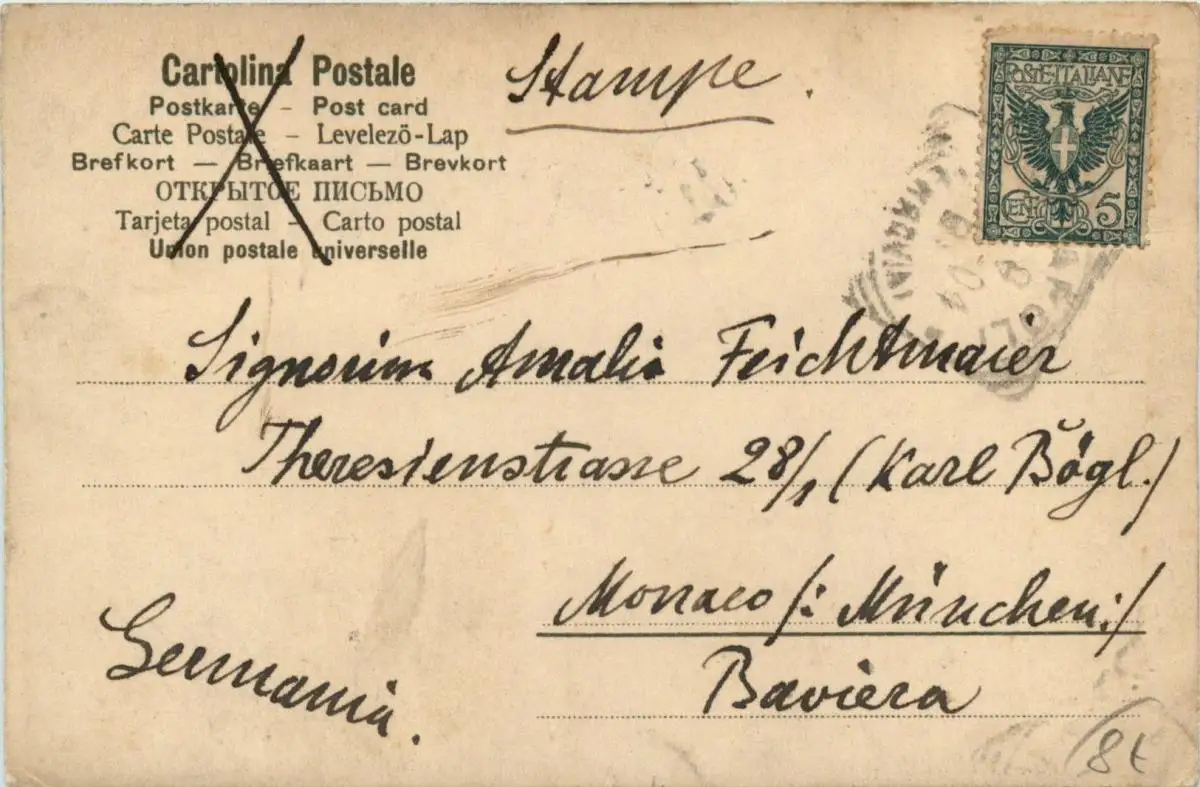 Cartolina Postale
Postkarte – Post card
Carte Postale – Levelezö-Lap
Brefkort — Briefkaart — Brevkort
ОТКРЫТОЕ ПИСЬМО
Tarjeta postal – Carto postal
Union postale universelle
Stampe.
POSTE·ITALIANE
CENT 5
NAPOLI
8 04
Signorina Amalia Feichtmaier
Theresienstrasse 28/1 (Karl Bögl.)
Monaco /: München :/
Baviera
Germania.
8t